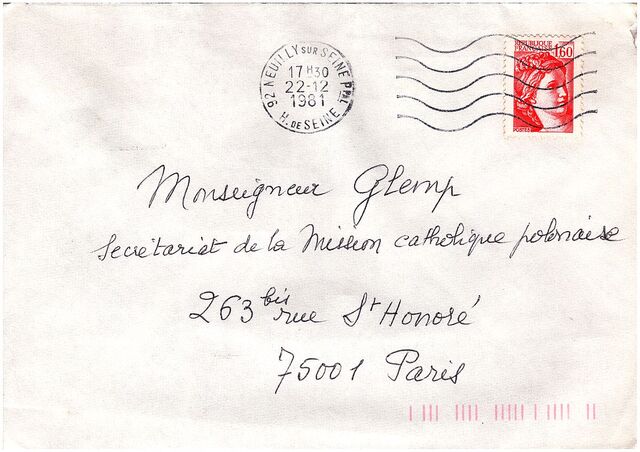 92 NEUILLY SUR SEINE PPAL
17H30
22-12
1981
H. DE SEINE
REPUBLIQUE
FRANCAISE
1,60
POSTES
Monseigneur Glemp
Secrétariat de la Mission catholique polonaise
263 bis rue St Honoré
75001 Paris